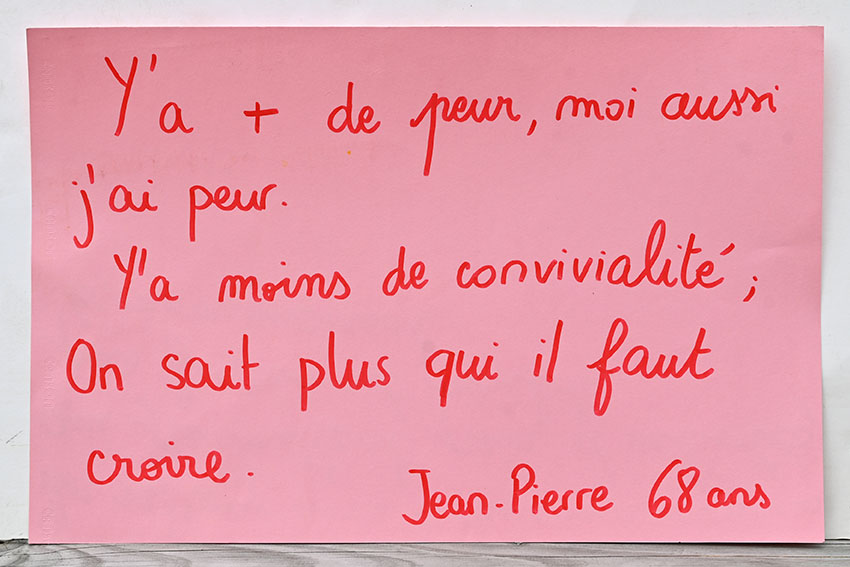 Y'a + de peur, moi aussi
j'ai peur.
Y'a moins de convivialité ;
On sait plus qui il faut
croire.
Jean-Pierre 68 ans